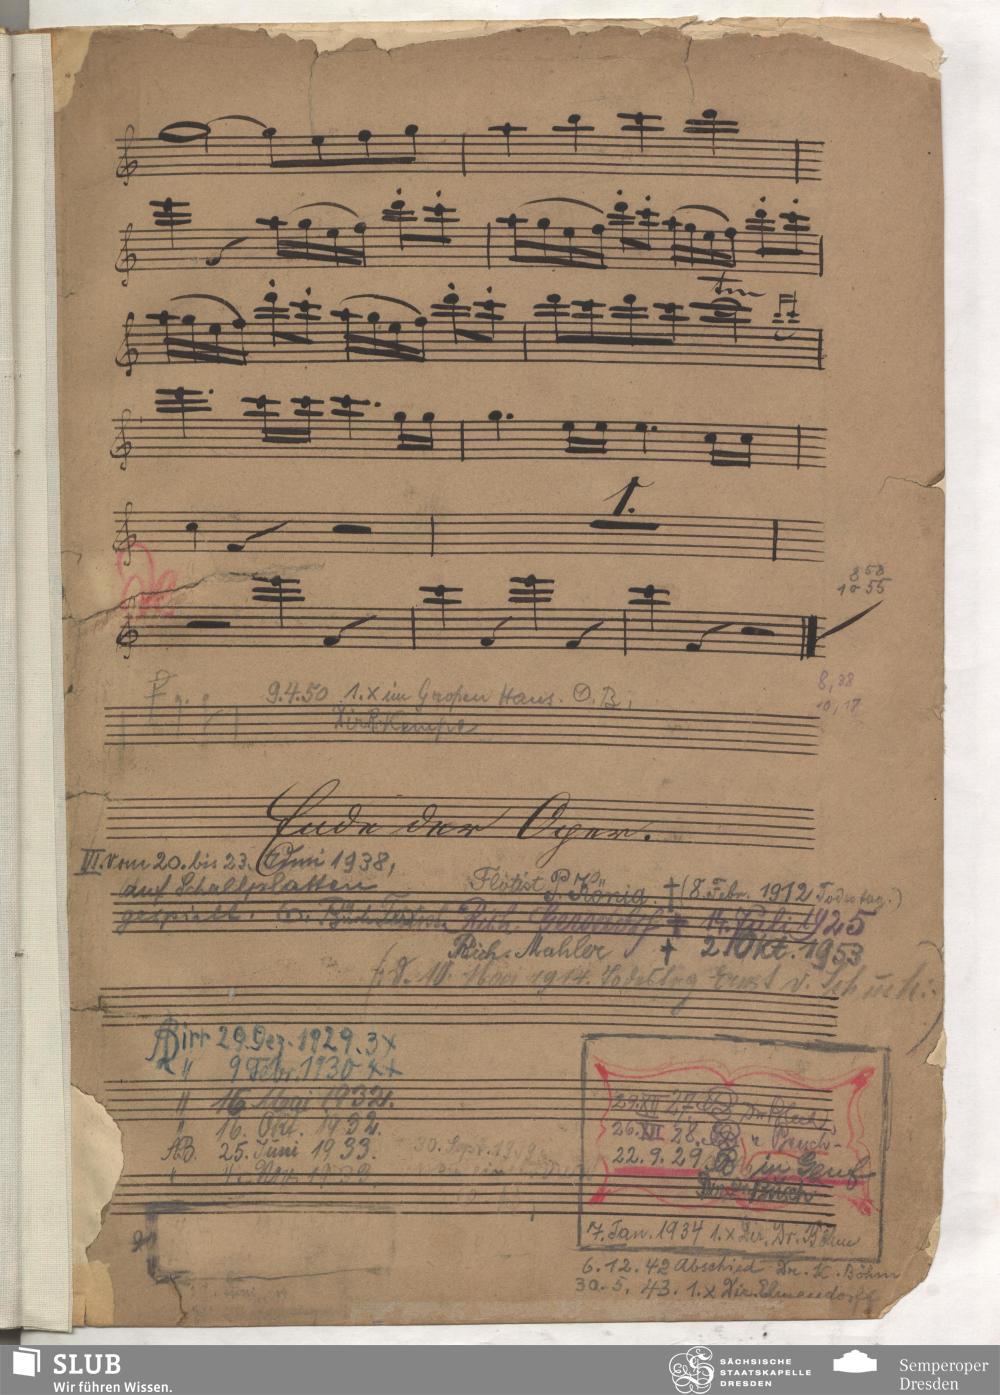 tr
1.
8 58
10 55
8, 38
10, 17
9.4.50 1.x im Großen Haus. O.B.;
Dir. R. Kempe
Ende der Oper.
VI. Vom 20. bis 23. Juni 1938,
auf Schallplatten
gespielt.
Flötist P. König. † (8. Febr. 1912 Todestag.)
Rich. † 14. Juli 1925
Rich. Mahler † 2. Okt. 1953
10. Mai 1914. Todestag Ernst v. Schuch.
AB irr 29. Dez. 1929. 3x
" 9 Febr. 1930 xx
" 16 Mai 1932.
" 16. Okt. 1932.
AB. 25. Juni 1933.
30. Sept. 1939
" 1933.
29. XII 27. B
26. XII 28. B " Busch-
22. 9. 29 B in Genf
Dir. Busch
7. Jan. 1934 1.x Dir. Dr. Böhm
6. 12. 42 Abschied Dr. K. Böhm
30. 5. 43. 1.x Dir. Elmendorff
SLUB
Wir führen Wissen.
SÄCHSISCHE
STAATSKAPELLE
DRESDEN
Semperoper
Dresden